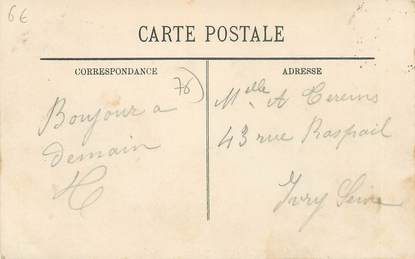 6€
CARTE POSTALE
CORRESPONDANCE
ADRESSE
76
Bonjour a
demain
H
Melle A Cereins
43 rue Raspail
Ivry Seine